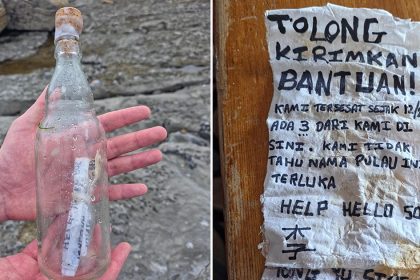 TOLONG
KIRIMKAN
BANTUAN!
KAMI TERSESAT SEJAK 12/
ADA 3 DARI KAMI DI
SINI. KAMI TIDAK
TAHU NAMA PULAU INI
TERLUKA
HELP HELLO SO
李